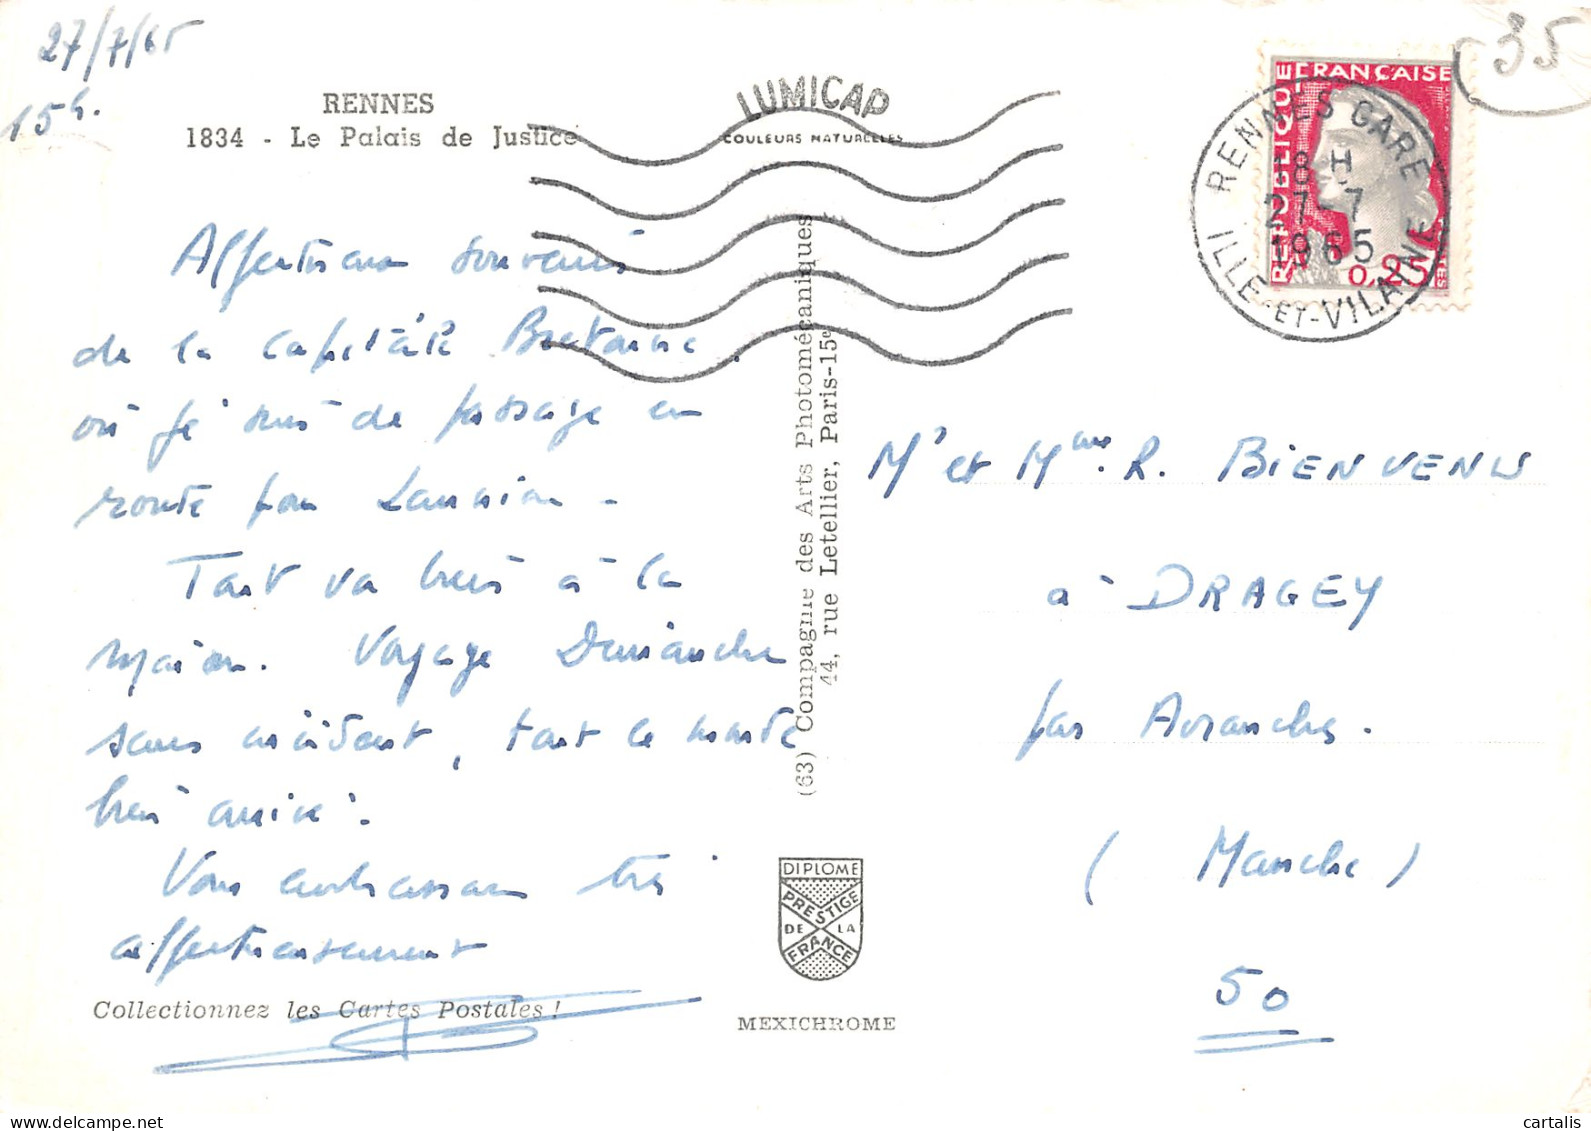 27/7/65
15h.
RENNES
1834 - Le Palais de Justice
LUMICAP
COULEURS NATURELLES
Affectueux souvenirs
de la capitale Bretonne.
où je suis de passage en
route pour Lannion -
Tout va bien à la
maison. Voyage Dimanche
sans accident, tout le monde
bien arrivé.
Vous embrassons très
affectueusement
Collectionnez les Cartes Postales !
(63) Compagnie des Arts Photomécaniques
44, rue Letellier, Paris-15e
DIPLOME
PRESTIGE
DE LA
FRANCE
MEXICHROME
35
REPUBLIQUE FRANÇAISE
0,25
RENNES GARE
18 H
27-7
1965
ILLE-ET-VILAINE
Mr et Mme. R. BIENVENU
à DRAGEY
par Avranches.
(Manche)
50
delcampe.net
cartalis